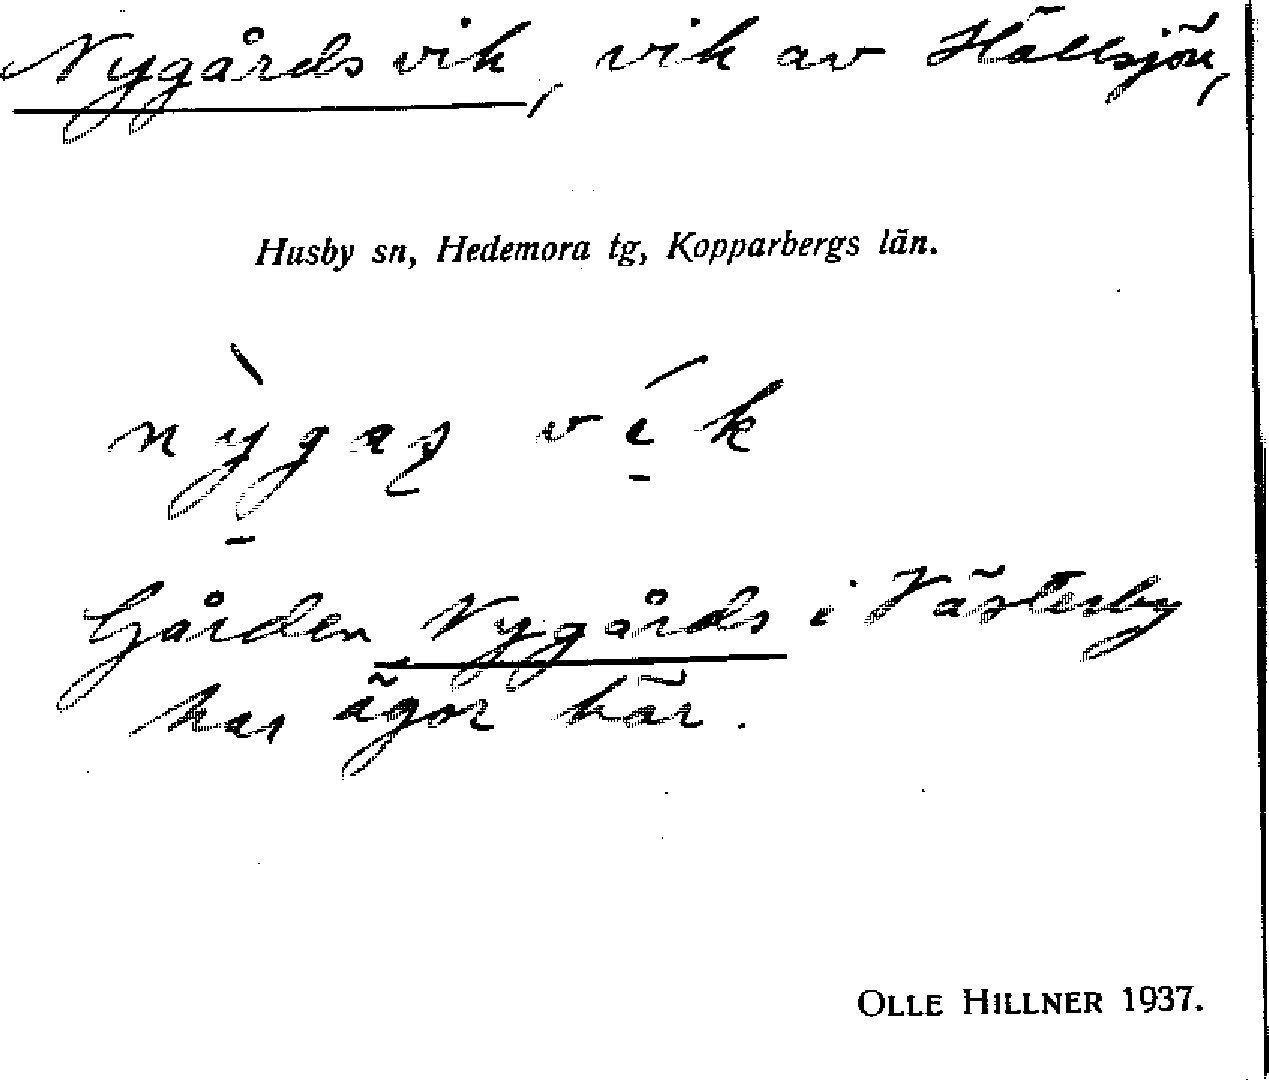 Nygårdsvik, vik av Hällsjön,
Husby sn, Hedemora tg, Kopparbergs län.
Gården Nygårds i Västerby
har ägor här.
OLLE HILLNER 1937.